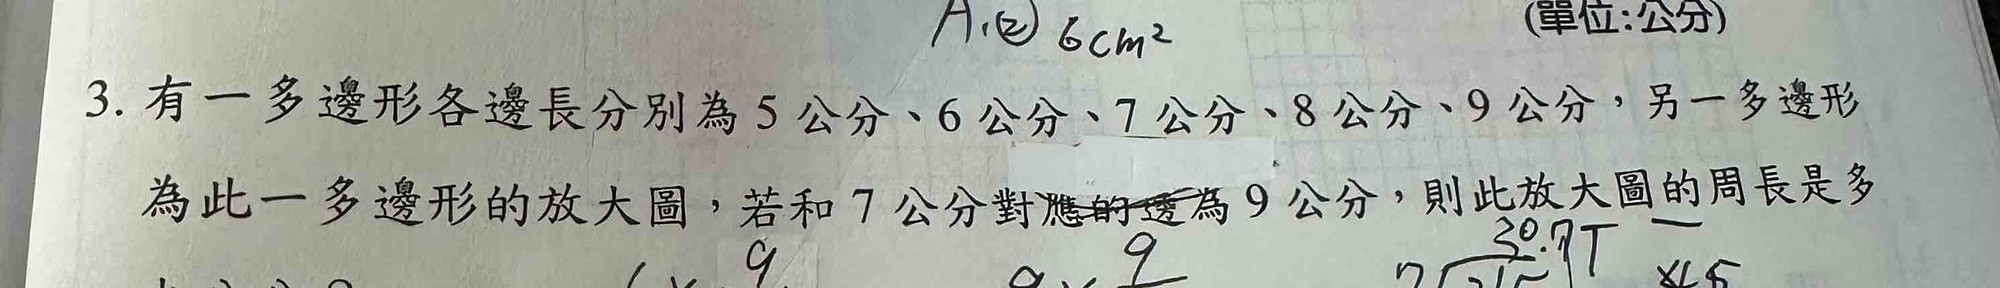 A:② 6cm²
(單位:公分)
3. 有一多邊形各邊長分別為 5 公分、6 公分、7 公分、8 公分、9 公分，另一多邊形
為此一多邊形的放大圖，若和 7 公分對應的邊為 9 公分，則此放大圖的周長是多
9 9 30.7